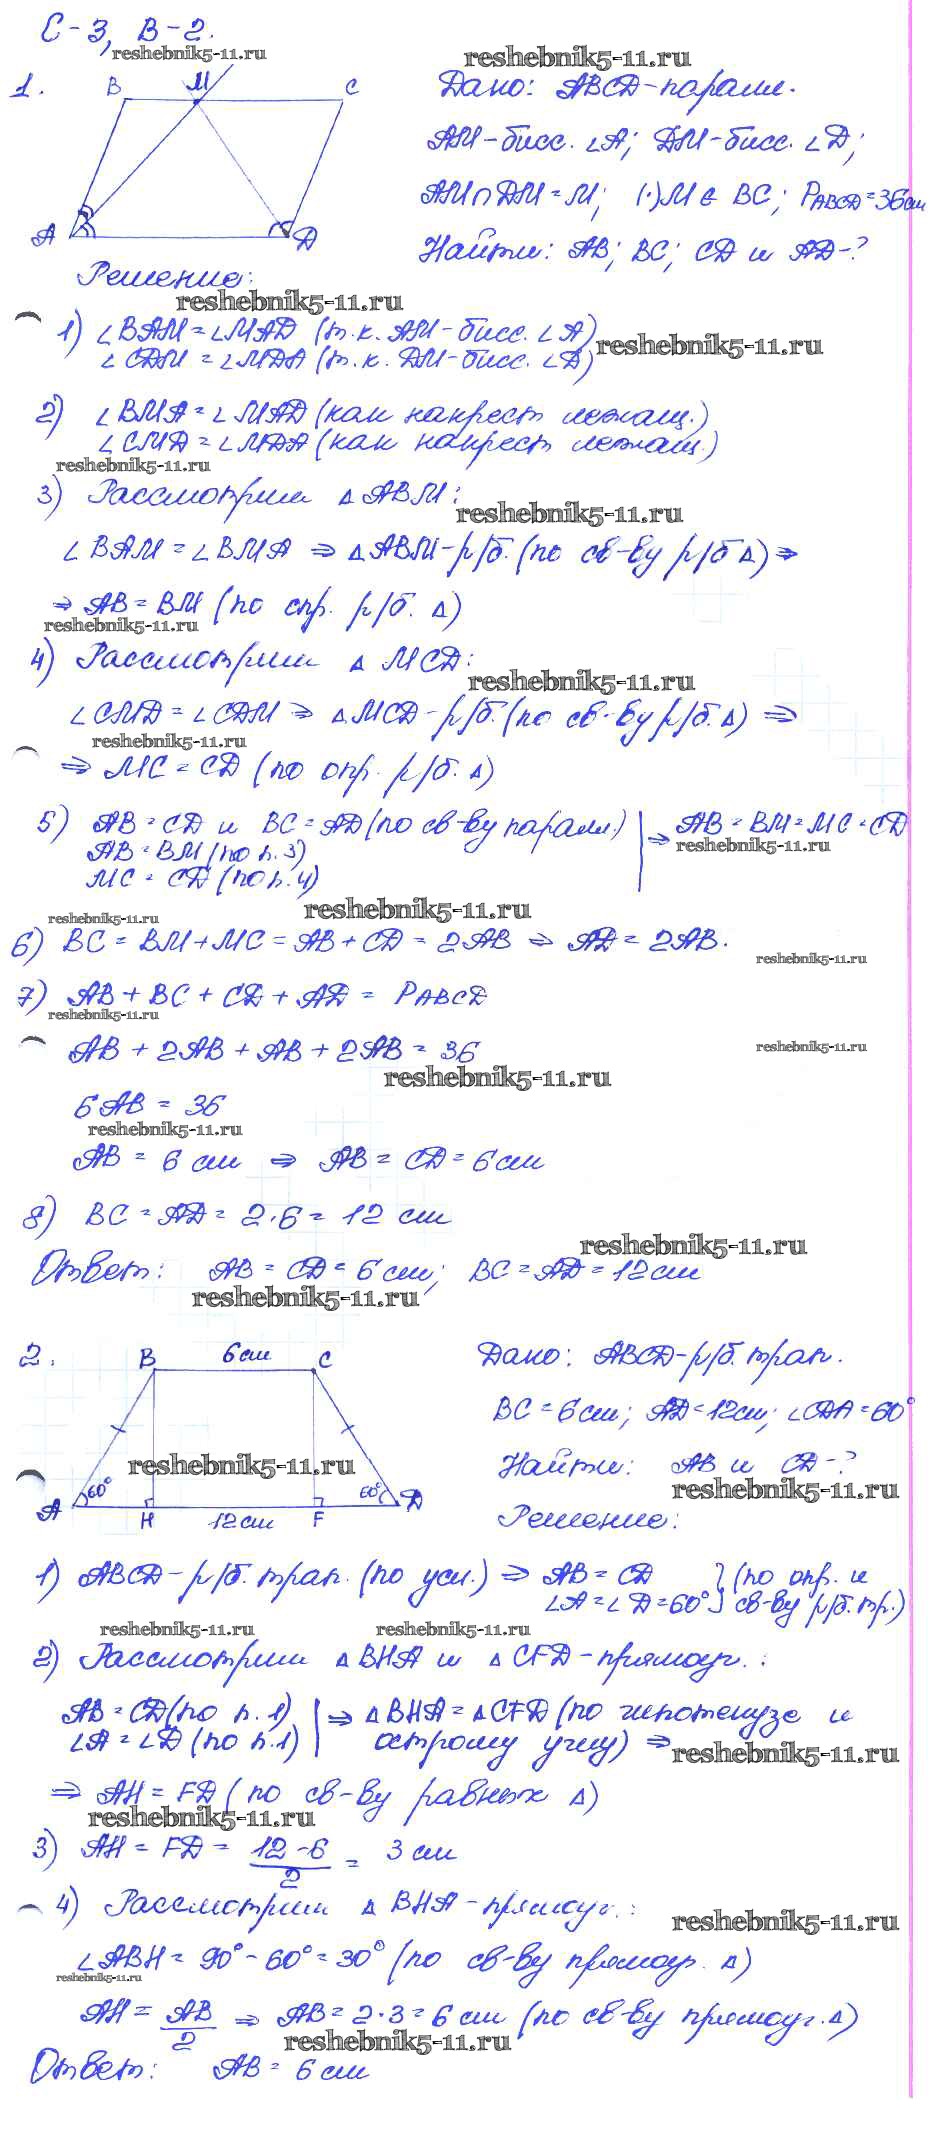 С-3, В-2.
reshebnik5-11.ru
reshebnik5-11.ru
1.
B M C
A D
Дано: ABCD-паралл.
AM-бисс. ∠A; DM-бисс. ∠D;
AM∩DM=M; (·)M∈BC; P_ABCD=36см
Найти: AB; BC; CD и AD-?
Решение:
reshebnik5-11.ru
1) ∠BAM=∠MAD (т.к. AM-бисс. ∠A)
reshebnik5-11.ru
∠CDM=∠MDA (т.к. DM-бисс. ∠D)
2) ∠BMA=∠MAD (как накрест лежащ.)
∠CMD=∠MDA (как накрест лежащ.)
reshebnik5-11.ru
3) Рассмотрим △ABM:
reshebnik5-11.ru
∠BAM=∠BMA ⇒ △ABM-р/б. (по св-ву р/б △) ⇒
⇒ AB=BM (по опр. р/б. △)
reshebnik5-11.ru
4) Рассмотрим △MCD:
reshebnik5-11.ru
∠CMD=∠CDM ⇒ △MCD-р/б. (по св-ву р/б. △) ⇒
reshebnik5-11.ru
⇒ MC=CD (по опр. р/б. △)
5) AB=CD и BC=AD (по св-ву паралл.) | ⇒ AB=BM=MC=CD
AB=BM (по п.3)
reshebnik5-11.ru
MC=CD (по п.4)
reshebnik5-11.ru
reshebnik5-11.ru
6) BC=BM+MC=AB+CD=2AB ⇒ AD=2AB.
reshebnik5-11.ru
7) AB+BC+CD+AD=P_ABCD
reshebnik5-11.ru
AB+2AB+AB+2AB=36
reshebnik5-11.ru
reshebnik5-11.ru
6AB=36
reshebnik5-11.ru
AB=6 см ⇒ AB=CD=6см
8) BC=AD=2·6=12 см
reshebnik5-11.ru
Ответ: AB=CD=6см; BC=AD=12см
reshebnik5-11.ru
2.
B 6см C
60° 60°
A H 12см F D
reshebnik5-11.ru
Дано: ABCD-р/б. трап.
BC=6см; AD=12см; ∠CDA=60°
Найти: AB и CD-?
reshebnik5-11.ru
Решение:
1) ABCD-р/б. трап. (по усл.) ⇒ AB=CD } (по опр. и
∠A=∠D=60° } св-ву р/б. тр.)
reshebnik5-11.ru
reshebnik5-11.ru
2) Рассмотрим △BHA и △CFD-прямоуг.:
AB=CD (по п.1) | ⇒ △BHA=△CFD (по гипотенузе и
∠A=∠D (по п.1) | острому углу) ⇒
reshebnik5-11.ru
⇒ AH=FD (по св-ву равных △)
reshebnik5-11.ru
3) AH=FD=(12-6)/2=3 см
4) Рассмотрим △BHA-прямоуг.:
reshebnik5-11.ru
∠ABH=90°-60°=30° (по св-ву прямоуг. △)
reshebnik5-11.ru
AH=AB/2 ⇒ AB=2·3=6 см (по св-ву прямоуг. △)
reshebnik5-11.ru
Ответ: AB=6 см